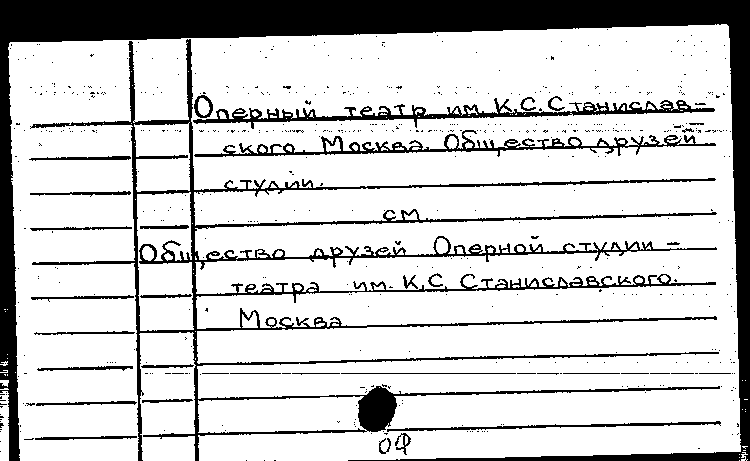 Оперный театр им. К.С. Станислав-
ского. Москва. Общество друзей
студии.
см.
Общество друзей Оперной студии -
театра им. К.С. Станиславского.
Москва
ОФ